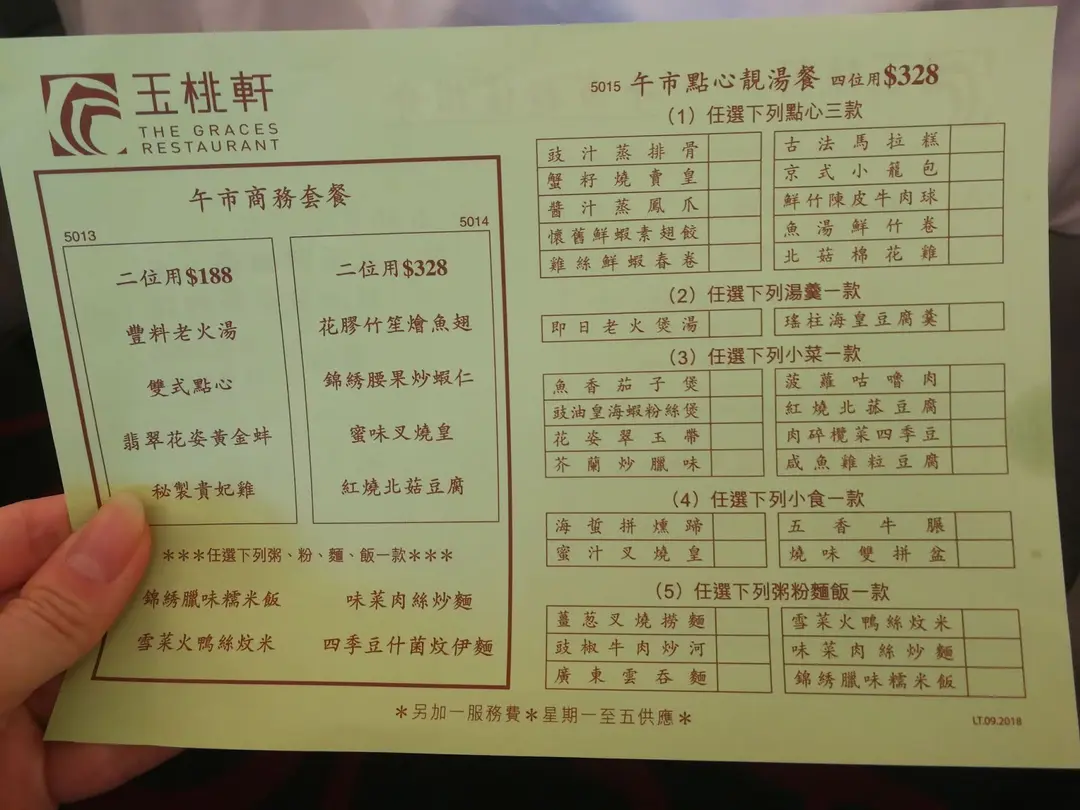 玉桃軒
THE GRACES
RESTAURANT
午市商務套餐
5013
二位用$188
豐料老火湯
雙式點心
翡翠花姿黃金蚌
秘製貴妃雞
5014
二位用$328
花膠竹笙燴魚翅
錦綉腰果炒蝦仁
蜜味叉燒皇
紅燒北菇豆腐
***任選下列粥、粉、麵、飯一款***
錦綉臘味糯米飯 味菜肉絲炒麵
雪菜火鴨絲炆米 四季豆什菌炆伊麵
5015 午市點心靚湯餐 四位用$328
(1) 任選下列點心三款
豉汁蒸排骨 古法馬拉糕
蟹籽燒賣皇 京式小籠包
醬汁蒸鳳爪 鮮竹陳皮牛肉球
懷舊鮮蝦素翅餃 魚湯鮮竹卷
雞絲鮮蝦春卷 北菇棉花雞
(2) 任選下列湯羹一款
即日老火煲湯 瑤柱海皇豆腐羹
(3) 任選下列小菜一款
魚香茄子煲 菠蘿咕嚕肉
豉油皇海蝦粉絲煲 紅燒北菇豆腐
花姿翠玉帶 肉碎欖菜四季豆
芥蘭炒臘味 咸魚雞粒豆腐
(4) 任選下列小食一款
海蜇拼燻蹄 五香牛𦟌
蜜汁叉燒皇 燒味雙拼盆
(5) 任選下列粥粉麵飯一款
薑葱叉燒撈麵 雪菜火鴨絲炆米
豉椒牛肉炒河 味菜肉絲炒麵
廣東雲吞麵 錦綉臘味糯米飯
*另加一服務費*星期一至五供應*
LT.09.2018